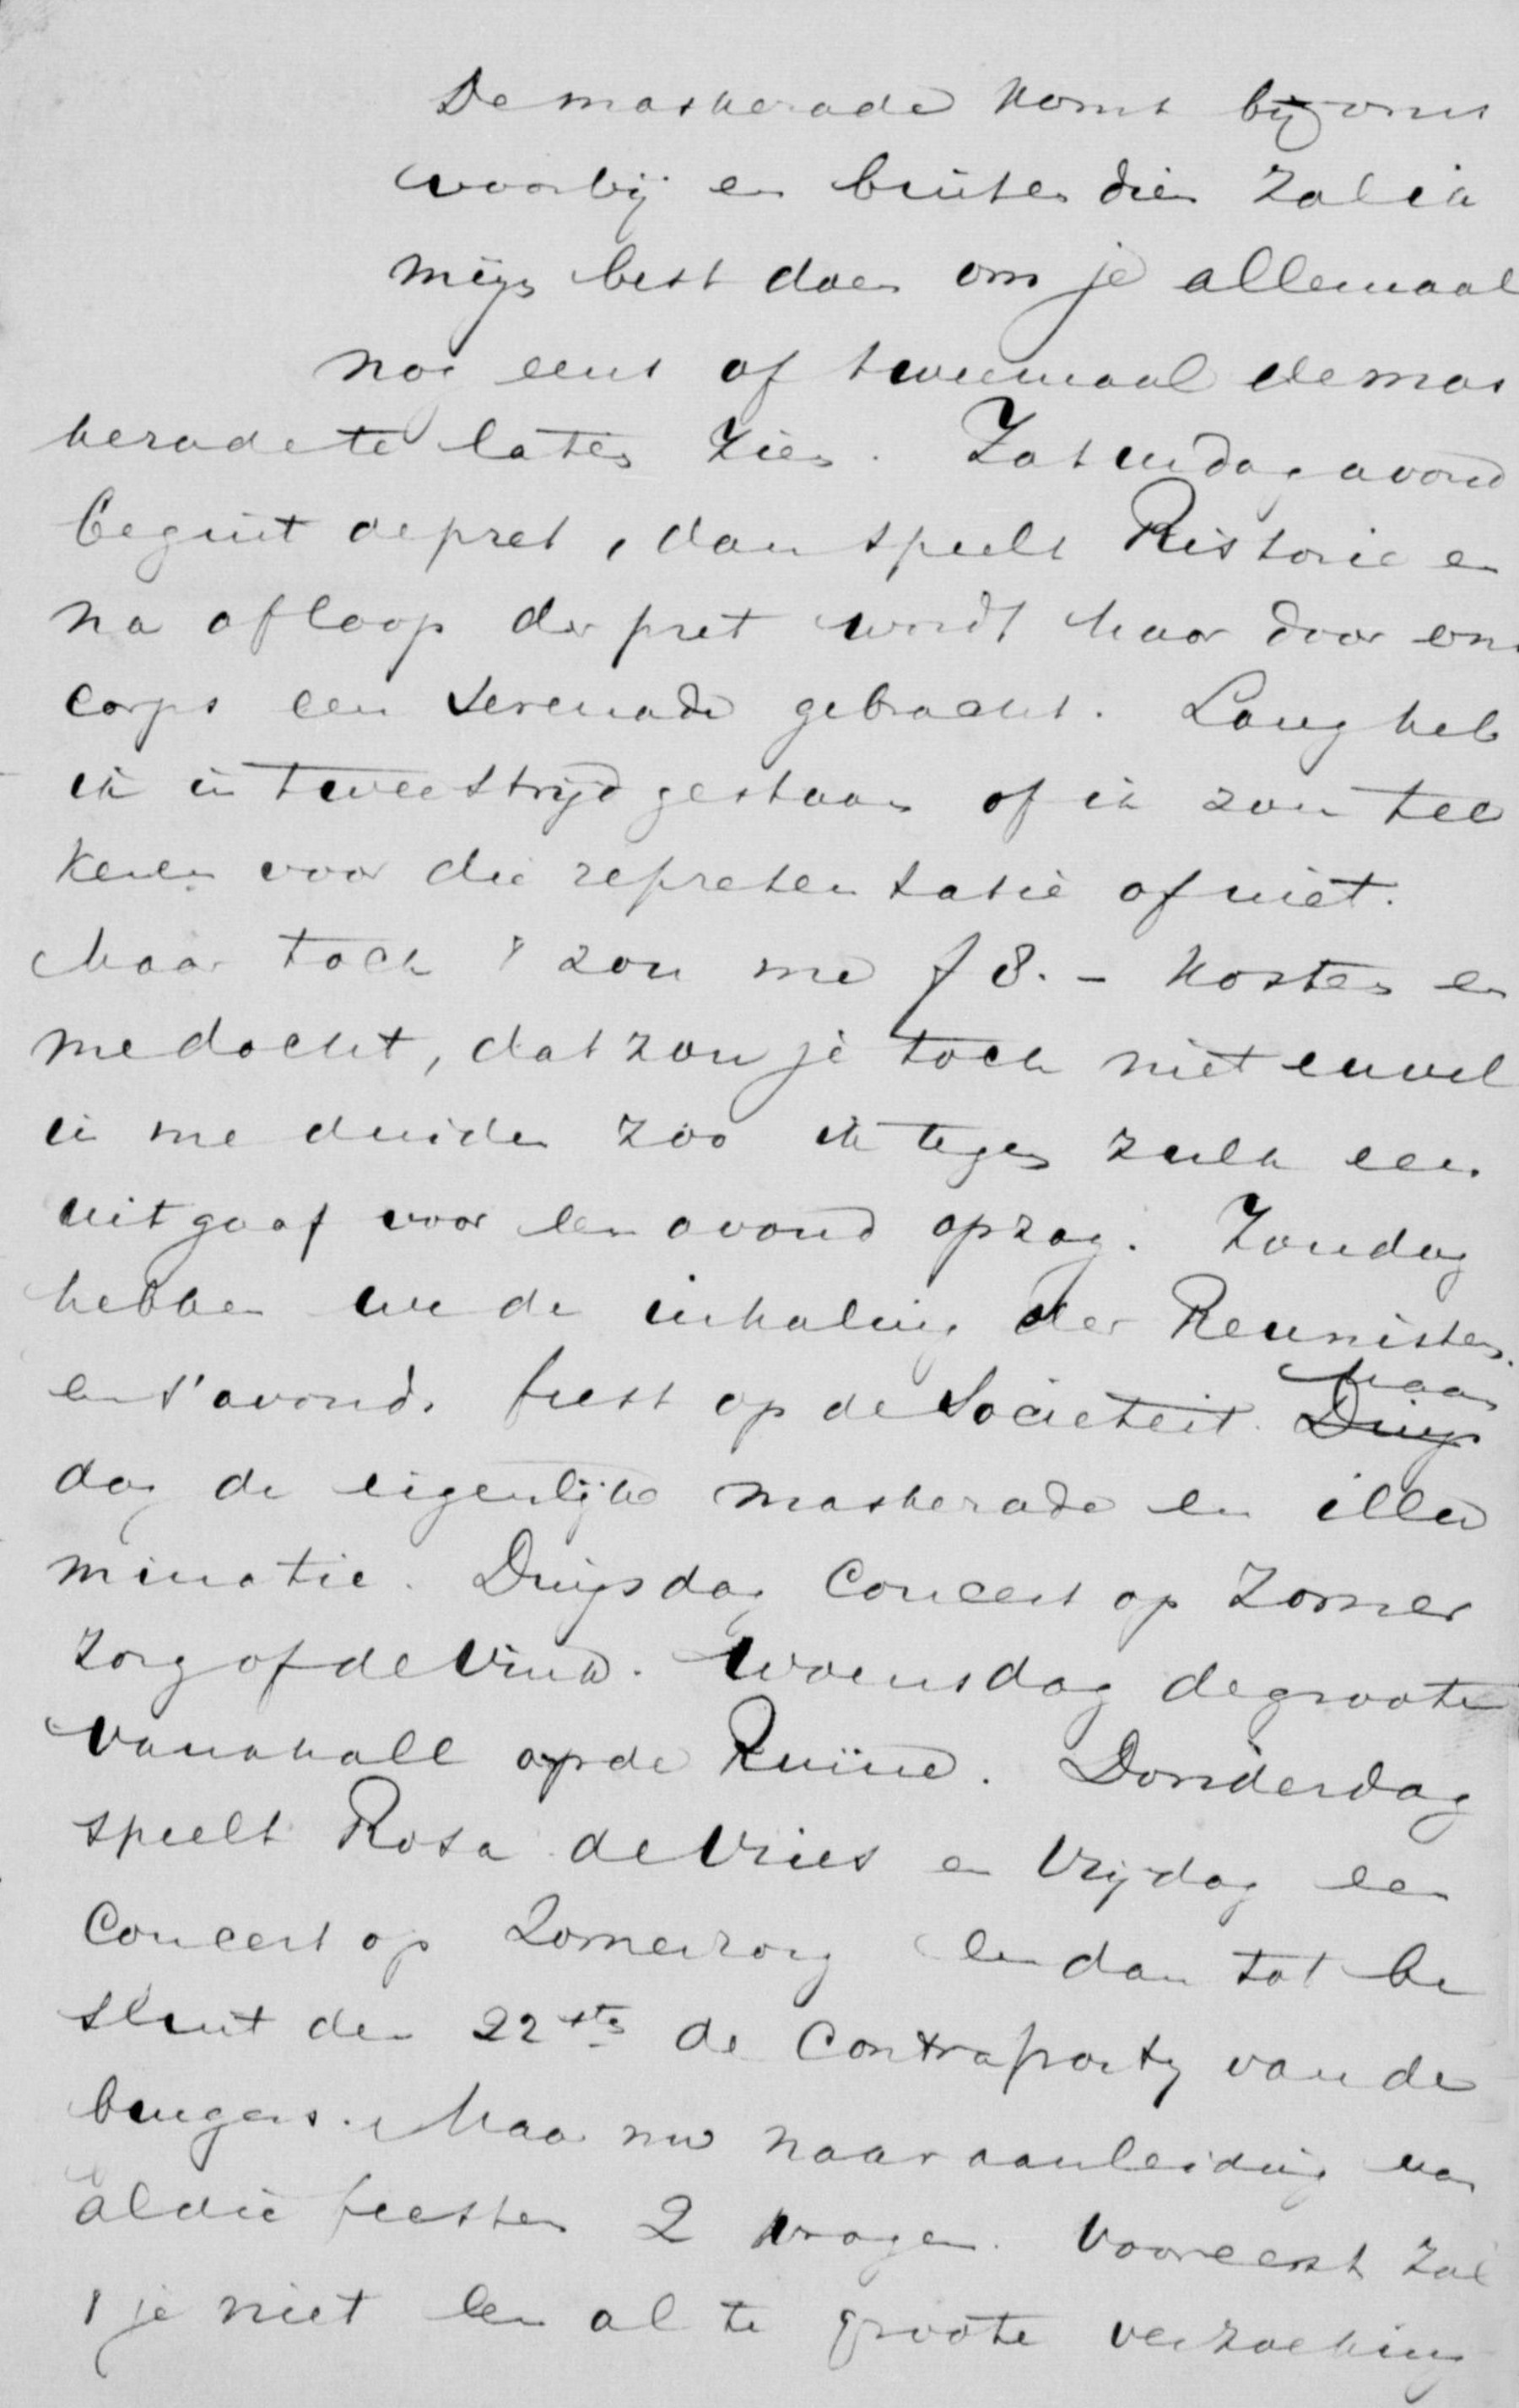 De maskerade komt bij ons
voorbij en buiten dien zal ik
mijn best doen om je allemaal
nog eens of tweemaal de mas
kerade te laten zien. Zaturdag avond
begint de pret, dan speelt Ristorie en
na afloop der pret wordt haar door ons
corps een serenade gebracht. Lang heb
ik in tweestrijd gestaan of ik zou tee
kenen voor die representatie of niet.
Maar toch 't zou me f 8.- kosten en
me dacht, dat zou je toch niet euvel
in me duiden zoo ik tegen zulk een
uitgaaf voor een avond opzag. Zondag
hebben we de inhaling der Reunisten.
en s'avonds feest op de Societeit. ~~Dings~~ Maan
dag de eigenlijke maskerade en illu
minatie. Dingsdag Concert op Zomer
zorg of de Vink. Woensdag de groote
Vauxhall op de Ruïne. Donderdag
speelt Rosa de Vries en Vrijdag een
Concert op Zomerzorg en dan tot be
sluit den 22sten de Contraparty van de
burgers. Maar nu naar aanleiding van
al die feesten 2 vragen. Vooreerst zal
't je niet een al te groote verzoeking